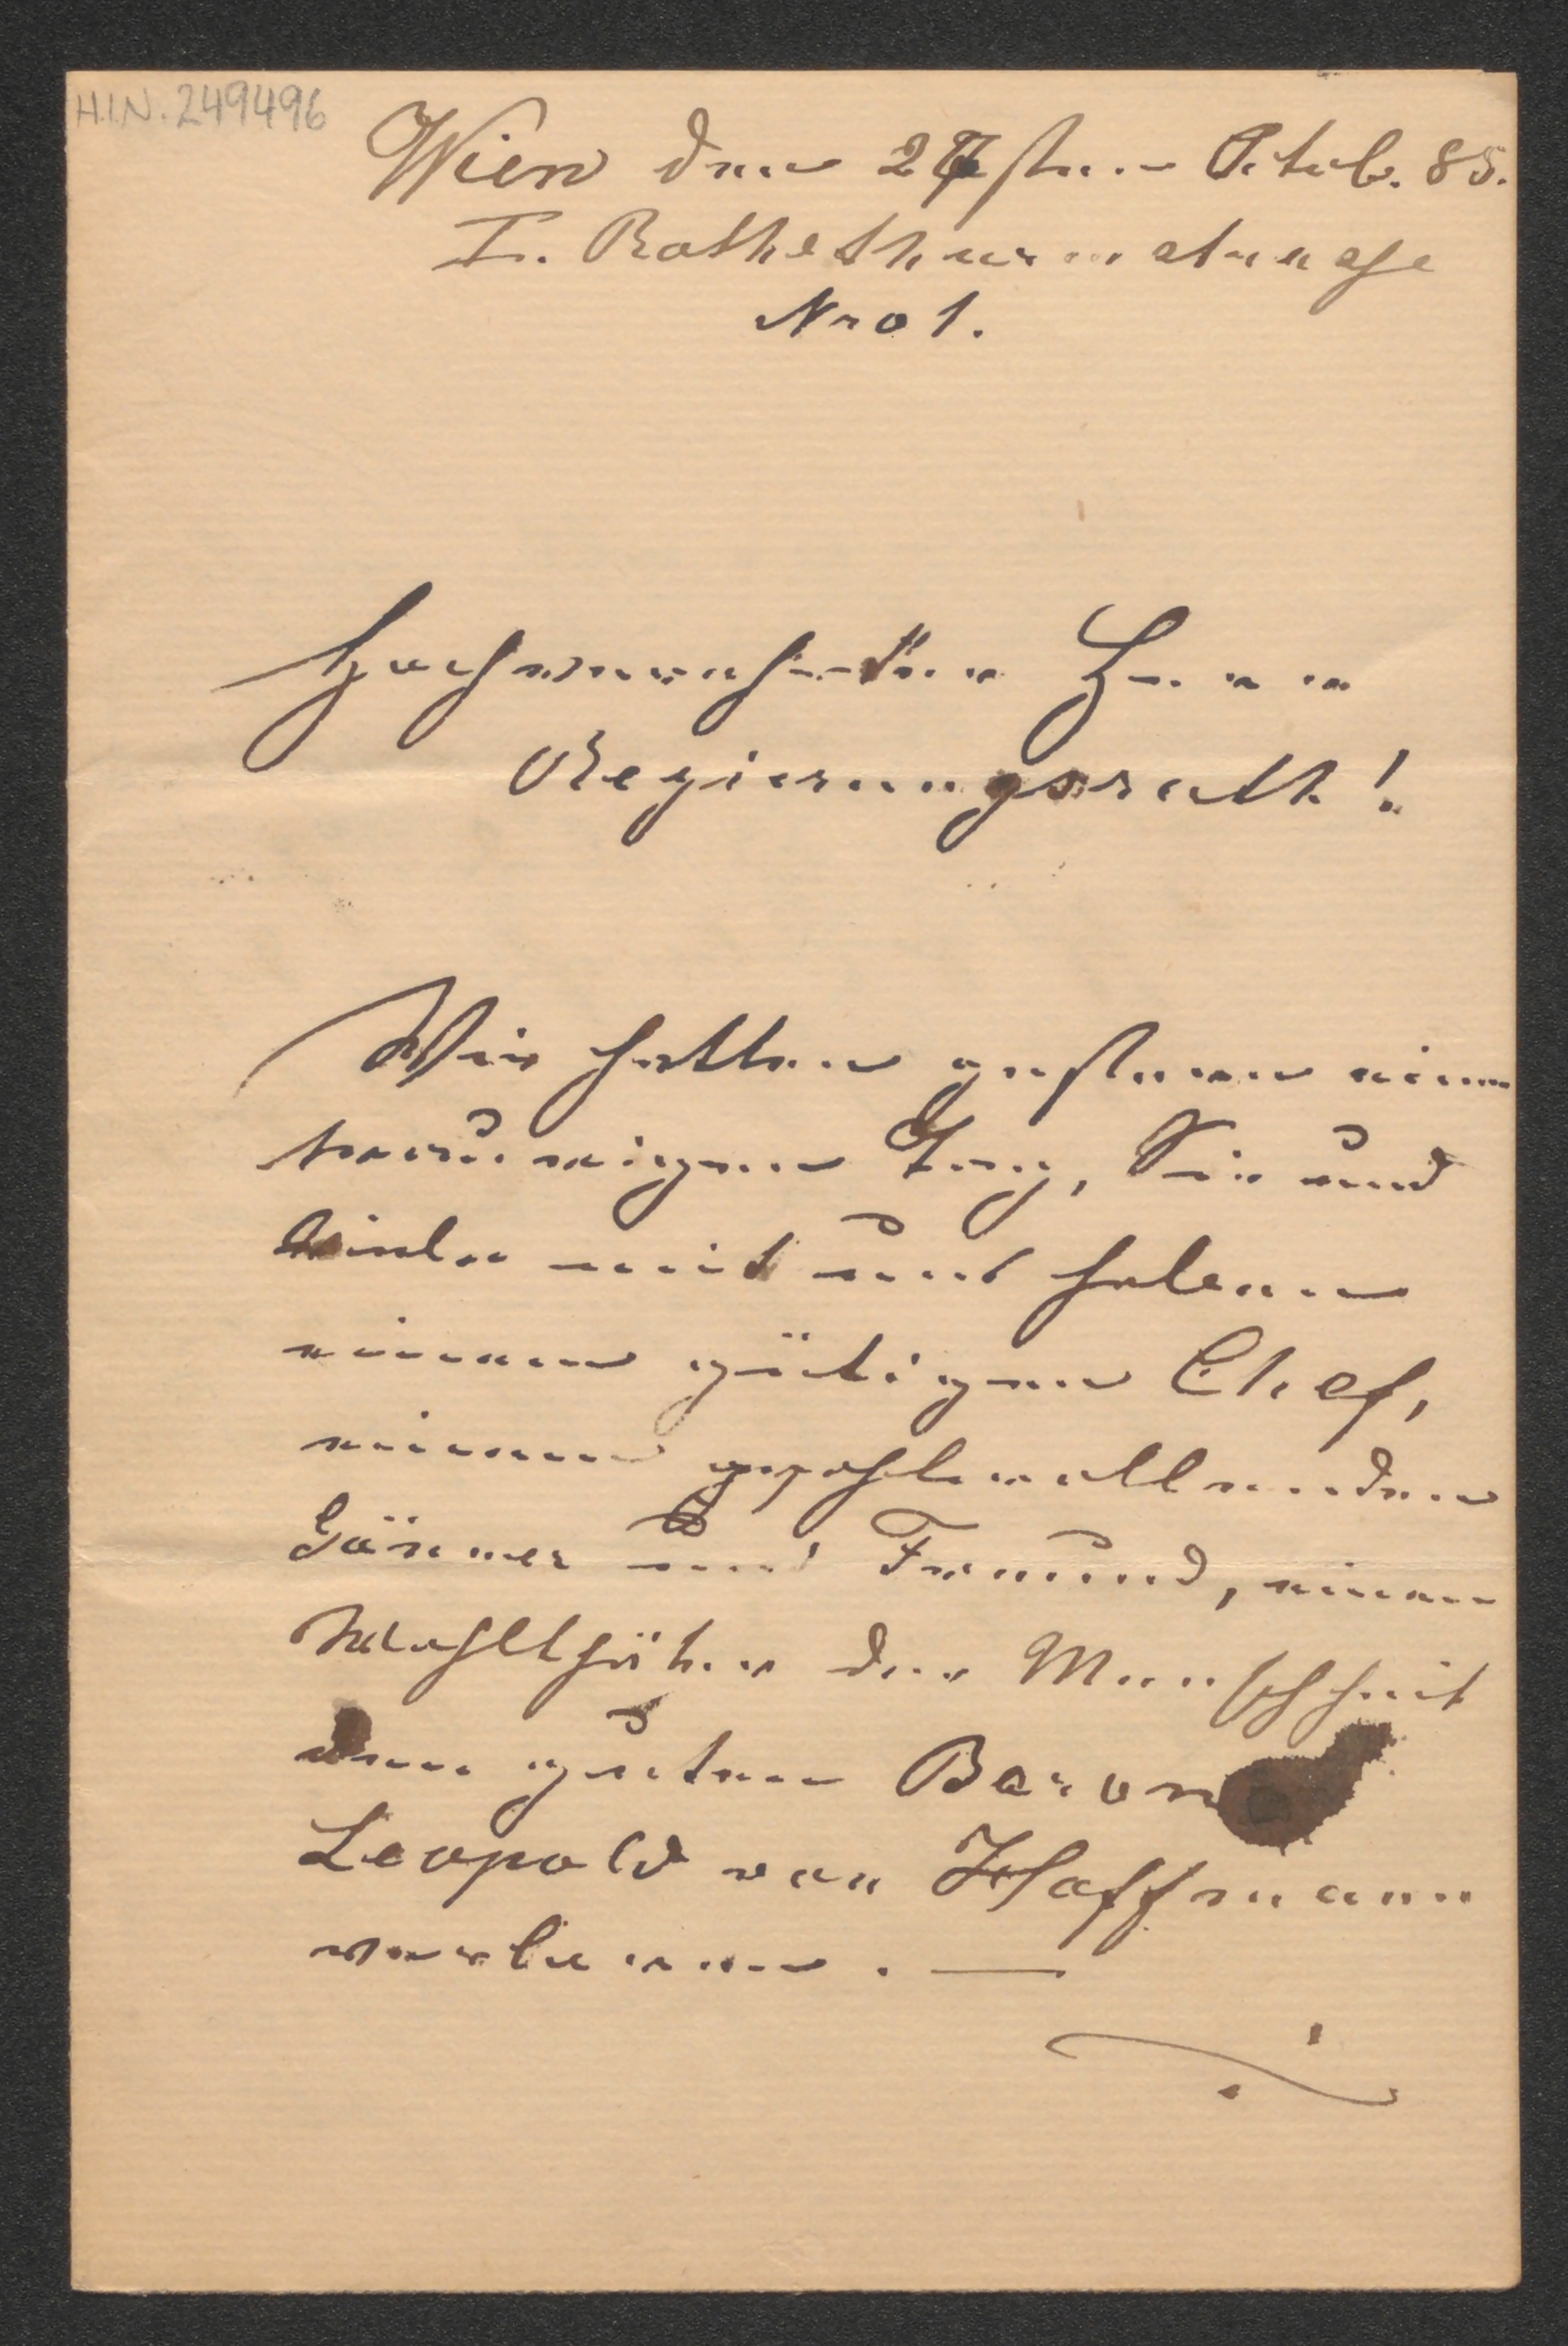 H.I.N. 249496
Wien den 27sten Octob. 85.
I. Rothethurmstrasse
Nro 1.
Hochverehrter Herr
Regierungsrath!
Wir hatten gestern einen
traurigen Tag, Sie und
viele mit uns haben
einen gütigen Chef,
einen wohlwollenden
Gönner und Freund, einen
Wohlthäter der Menschheit
den guten Baron
Leopold von Hoffmann
verloren. —